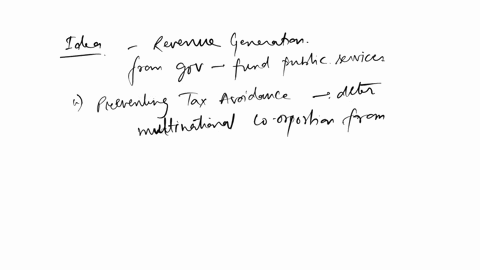 Idea - Revenue Generation.
from gov → fund public services
ii) Preventing Tax Avoidance → deter
multinational co-orporation from